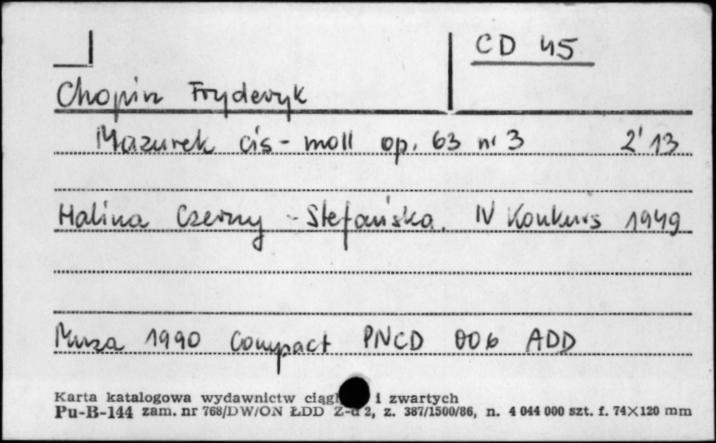 CD 45
Chopin Fryderyk
Mazurek cis-moll op. 63 nr 3 2'13
Halina Czerny-Stefańska. IV Konkurs 1949
Muza 1990 Compact PNCD 006 ADD
Karta katalogowa wydawnictw i zwartych
Pu-B-144 zam. nr 768/DW/ON ŁDD 2, z. 387/1500/86, n. 4 044 000 szt. f. 74×120 mm